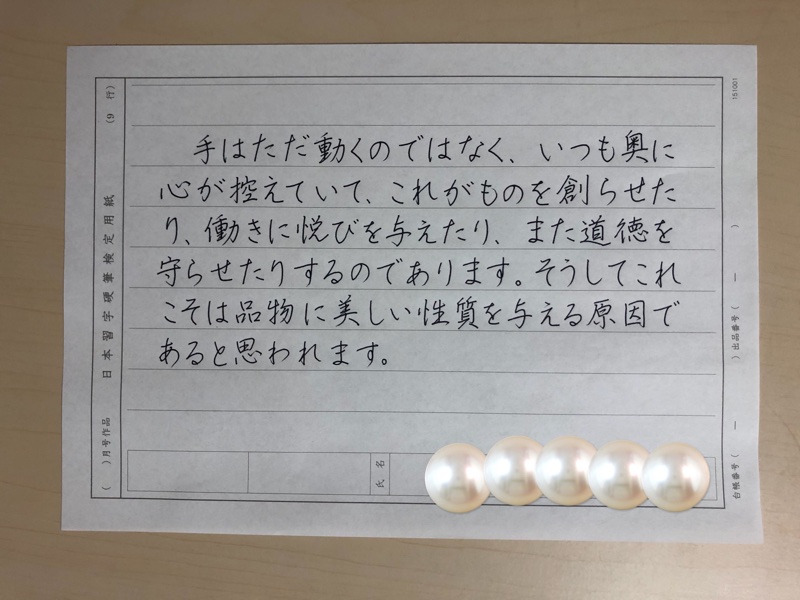 手はただ動くのではなく、いつも奥に
心が控えていて、これがものを創らせた
り、働きに悦びを与えたり、また道徳を
守らせたりするのであります。そうしてこれ
こそは品物に美しい性質を与える原因で
あると思われます。
氏名
(9 行)
日本習字硬筆検定用紙
( )月号作品
151001
)出品番号( ー )
台帳番号( ー